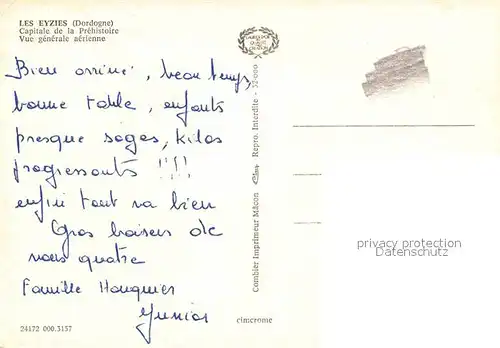 LES EYZIES (Dordogne)
Capitale de la Préhistoire
Vue générale aérienne
Bien arrivé, beau temps,
bonne table, enfants
presque sages, kilos
progressants !!!
enfin tout va bien
Gros baisers de
nous quatre
Famille
Junior
24172 000.3157
cimcrome
Combier Imprimeur Mâcon Cim Repro. Interdite - 32-000
privacy protection
AnsichtskartenVersand.com